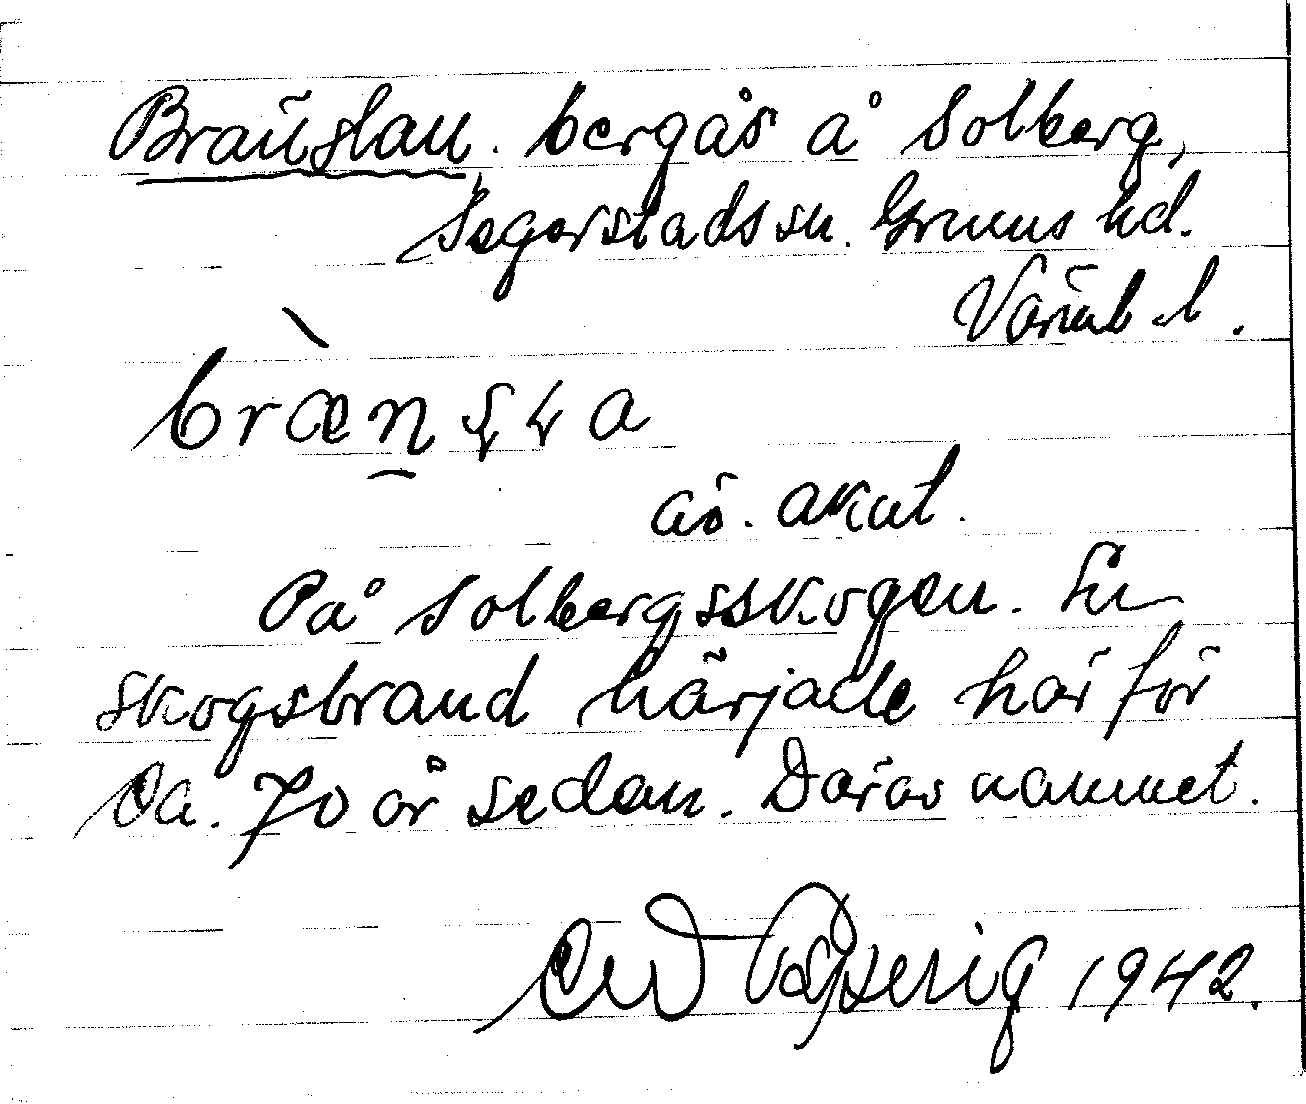 Brännslan. bergås å Solberg,
Segerstads sn. Grums hd.
Värml. l.
bræn
av. akut.
På Solbergsskogen. En
skogsbrand härjade här för
ca. 70 år sedan. Därav namnet.
1942.